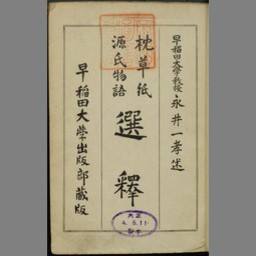 早稲田大學教授 永井一孝述
枕草紙
源氏物語
選釋
早稲田大學出版部蔵版
大正
4.5.11